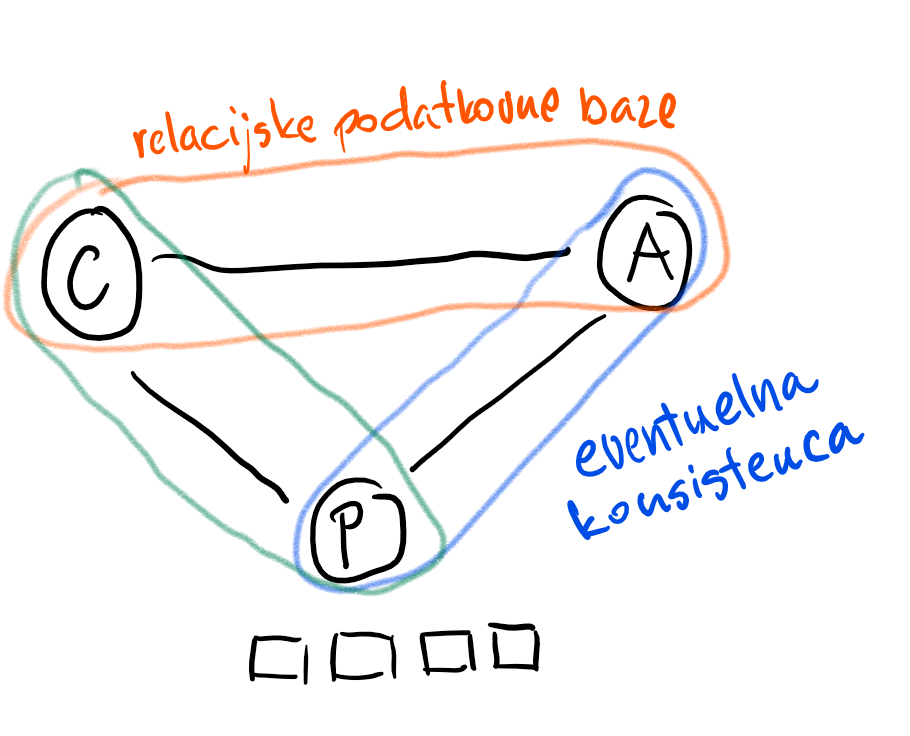 relacijske podatkovne baze
C
A
eventuelna
konsistenca
P